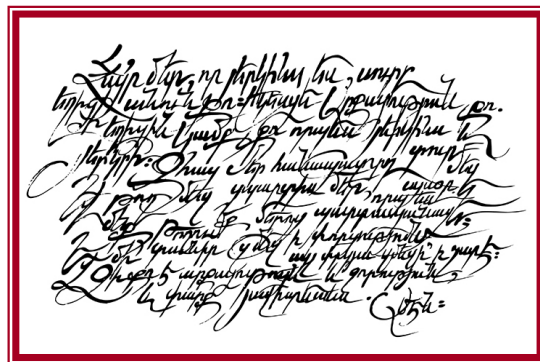 Հայր մեր, որ յերկինս ես, սուրբ
եղիցի անուն քո։ Եկեսցէ արքայութիւն քո։
Եղիցին կամք քո որպէս յերկինս եւ
յերկրի։ Զհաց մեր հանապազորդ տուր մեզ
եւ թող մեզ զպարտիս մեր, որպէս
եւ մեք թողումք մերոց պարտապանաց։
Եւ մի տանիր զմեզ ի փորձութիւն, այլ փրկեա զմեզ ի չարէ։
Զի քո է արքայութիւն եւ զօրութիւն
եւ փառք յաւիտեանս. Ամէն։